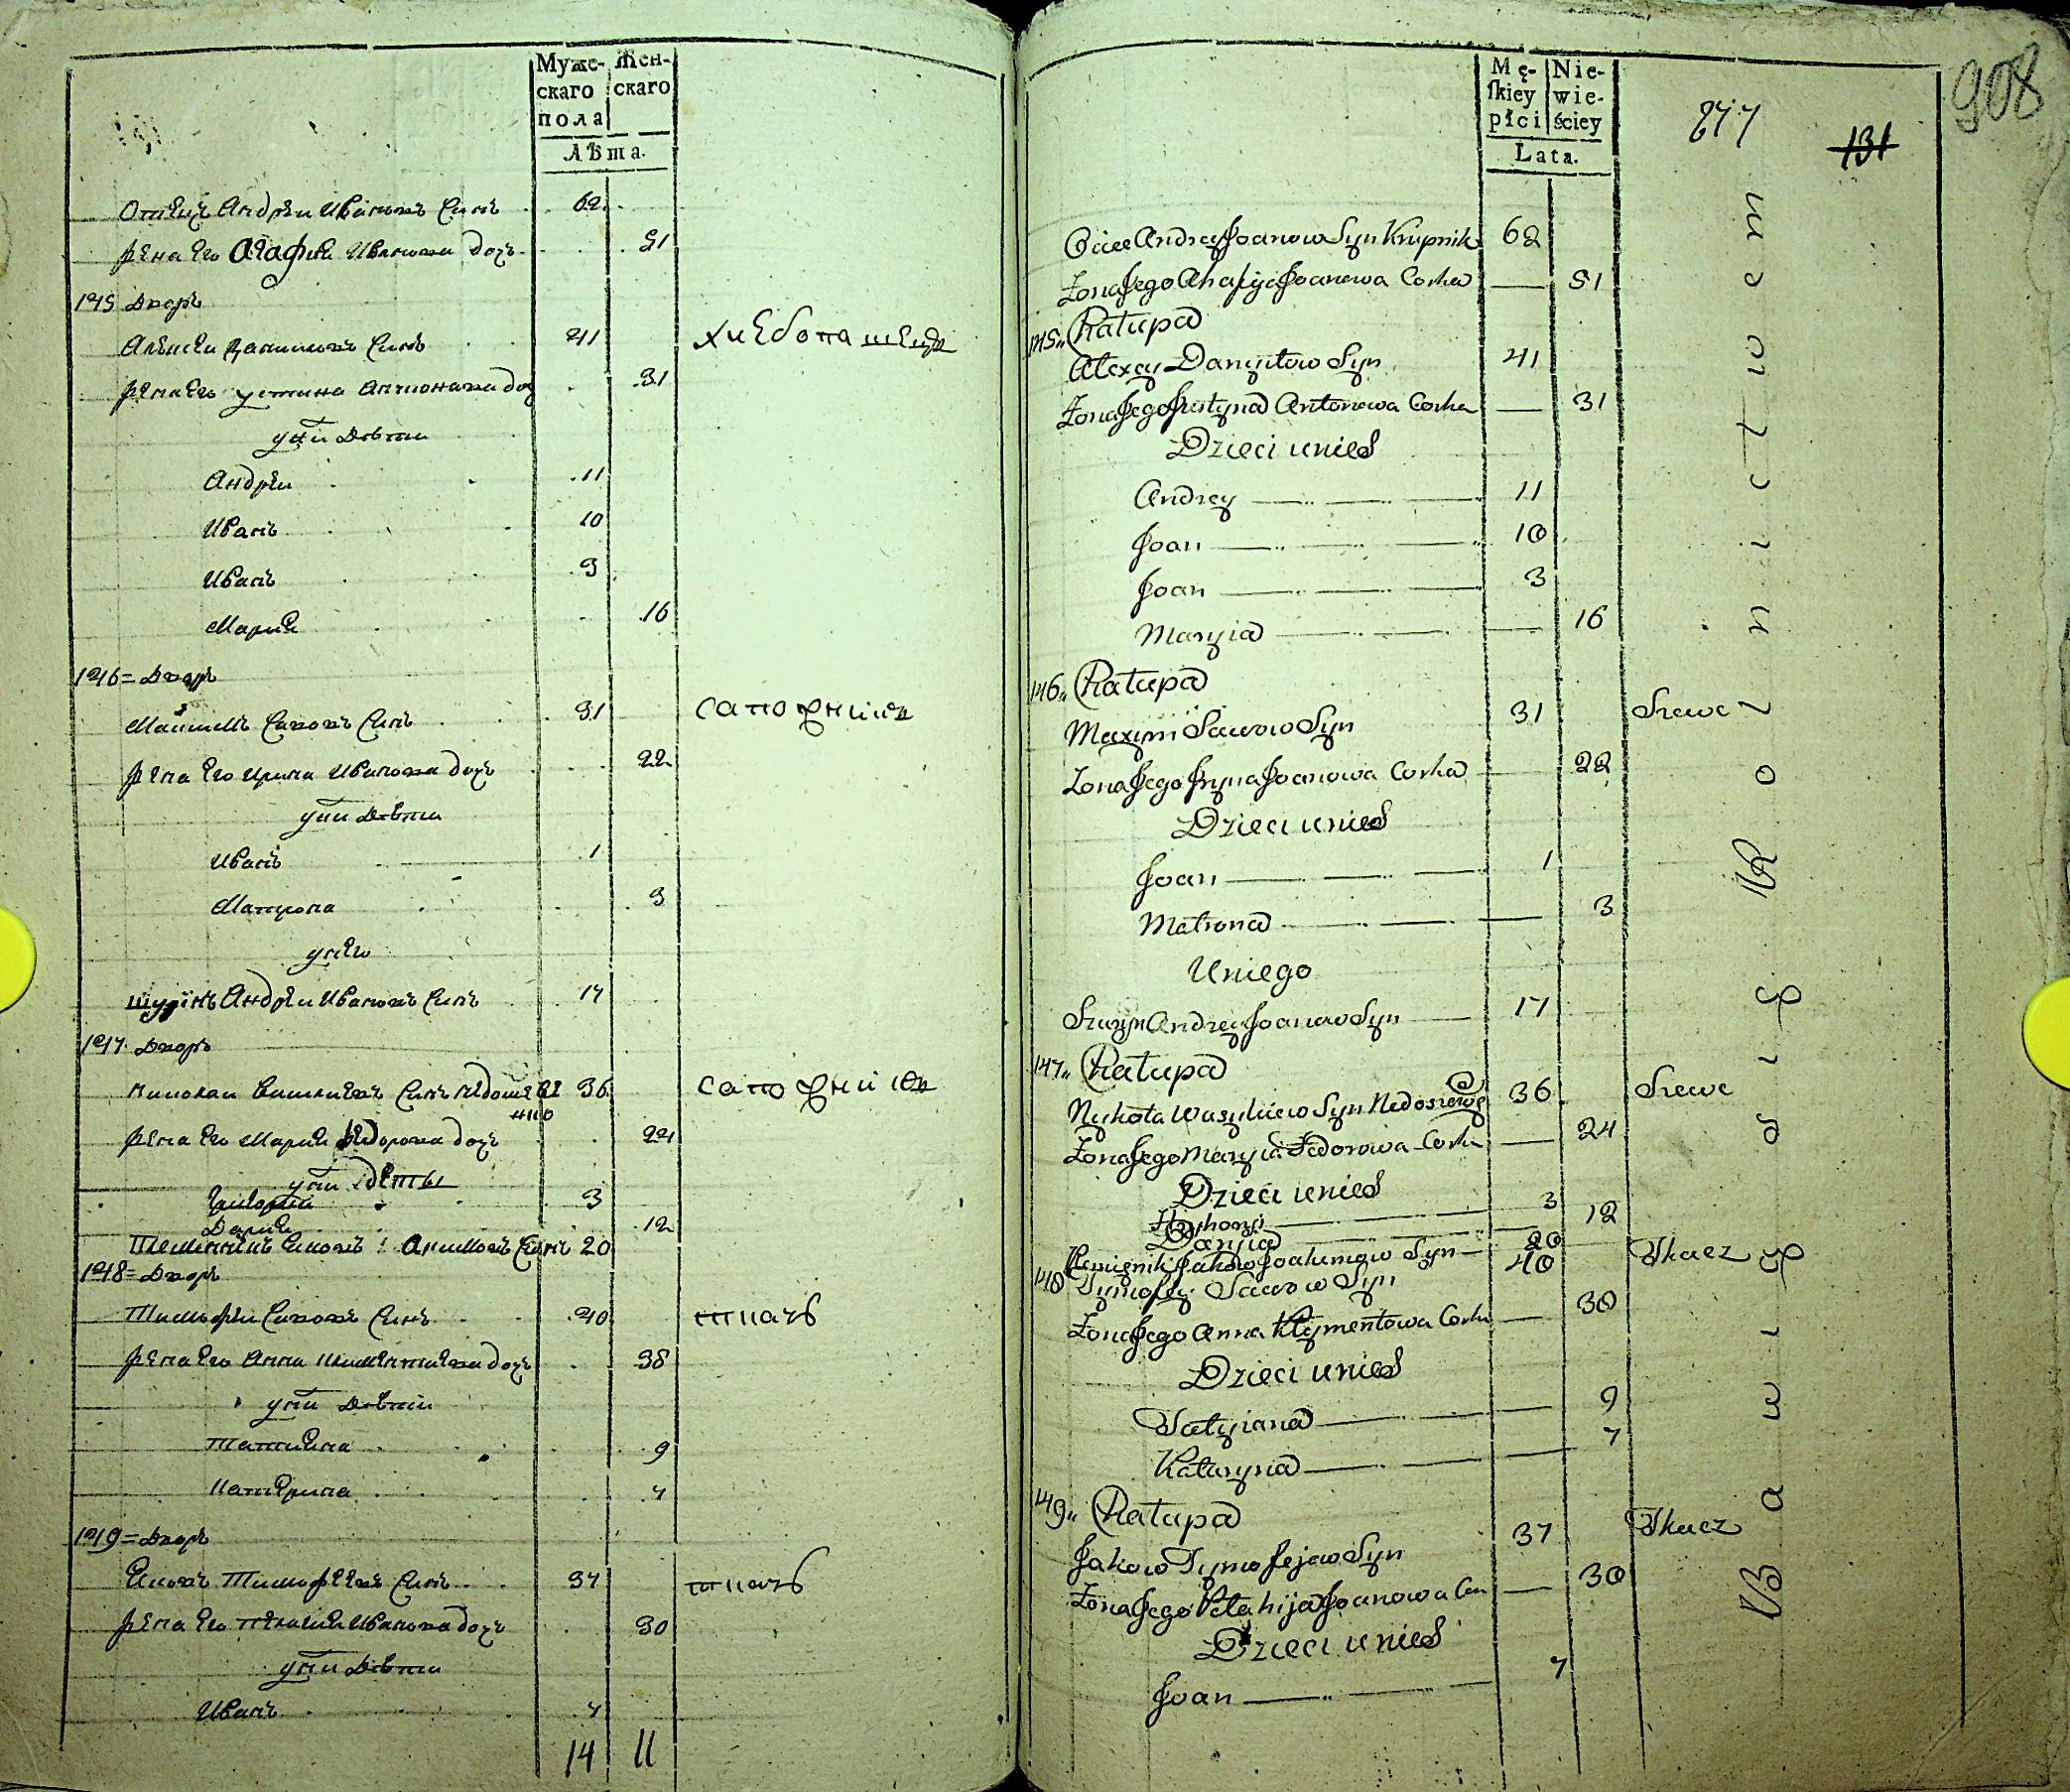 Муже-
скаго
пола
Жен-
скаго
Лѣта.
Отецъ Андрѣи Ивановъ Синъ 62
Жена Его Агафия Иванова дочь 51
145 Дворъ
Алексѣи Даниловъ Синъ 41 хлебопашецъ
Жена Его устина Антонова доч 31
у них Дѣти
Андрѣи 11
Иванъ 10
Иванъ 3
Мария 16
146 = Дворъ
Маѯимъ Савовъ Синъ 31 сапожникъ
Жена Его Ирина Иванова дочь 22
у них Дѣти
Иванъ 1
Матрона 3
у него
шуринъ Андрѣи Ивановъ Синъ 17
147 Дворъ
Николаи Василиевъ Синъ Недошев 36 сапожникъ
Жена Его Мария Федорова дочь 24
у них дѣти
Григории 3
Дария 12
Племянникъ Яковъ Акимовъ Синъ 20
148 = Дворъ
Тимофеи Савовъ Синъ 40 ткачь
Жена Его Анна Климентиева дочь 38
у них Дѣти
Татияна 9
Катерина 7
149 = Дворъ
Яковъ Тимофеевъ Синъ 37 ткачь
Жена Его пелагия Иванова дочь 30
у них Дѣти
Иванъ 7
14 11
Mę-
ſkiey
płci
Nie-
wie-
ściey
Lata.
877
131
908
Ociec Andrey Joanow Syn Krupnik 62
Żona Jego Ahafija Joanowa Corka 51
145„ Chałupa
Alexey Danyłow Syn 41
Żona Jego Justyna Antonowa Corka 31
Dzieci u nich
Andrey 11
Joan 10
Joan 3
Maryia 16
146„ Chałupa
Maxym Sawow Syn 31 Szewc
Żona Jego Jryna Joanowa Corka 22
Dzieci u nich
Joan 1
Matrona 3
U niego
Szuryn Andrey Joanow Syn 17
147„ Chałupa
Nykoła Wasyliew Syn Nedoszewe 36 Szewc
Żona Jego Maryia Fedorowa Corka 24
Dzieci u nich
Hryhory 3
Daryia 12
Plemięnik Jakow Joakimow Syn 20
148 Tymofey Sawow Syn 40 Tkacz
Żona Jego Anna Klymentowa Corka 38
Dzieci u nich
Tatyiana 9
Kataryna 7
149„ Chałupa
Jakow Tymofejew Syn 37 Tkacz
Żona Jego Pelahija Joanowa Cor 30
Dzieci u nich
Joan 7
Bawią się Rolnictwem